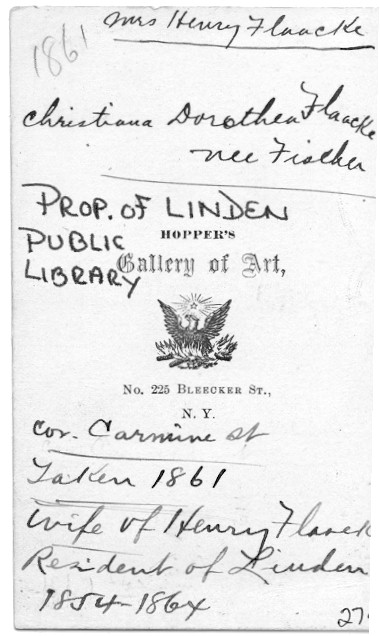 Mrs Henry Flaacke
1861
Christiana Dorothea Flaacke
nee Fischer
PROP. OF LINDEN
PUBLIC
LIBRARY
HOPPER'S
Gallery of Art,
No. 225 BLEECKER ST.,
N. Y.
cor. Carmine st
Taken 1861
Wife of Henry Flaack
Resident of Linden
1854-1864
27